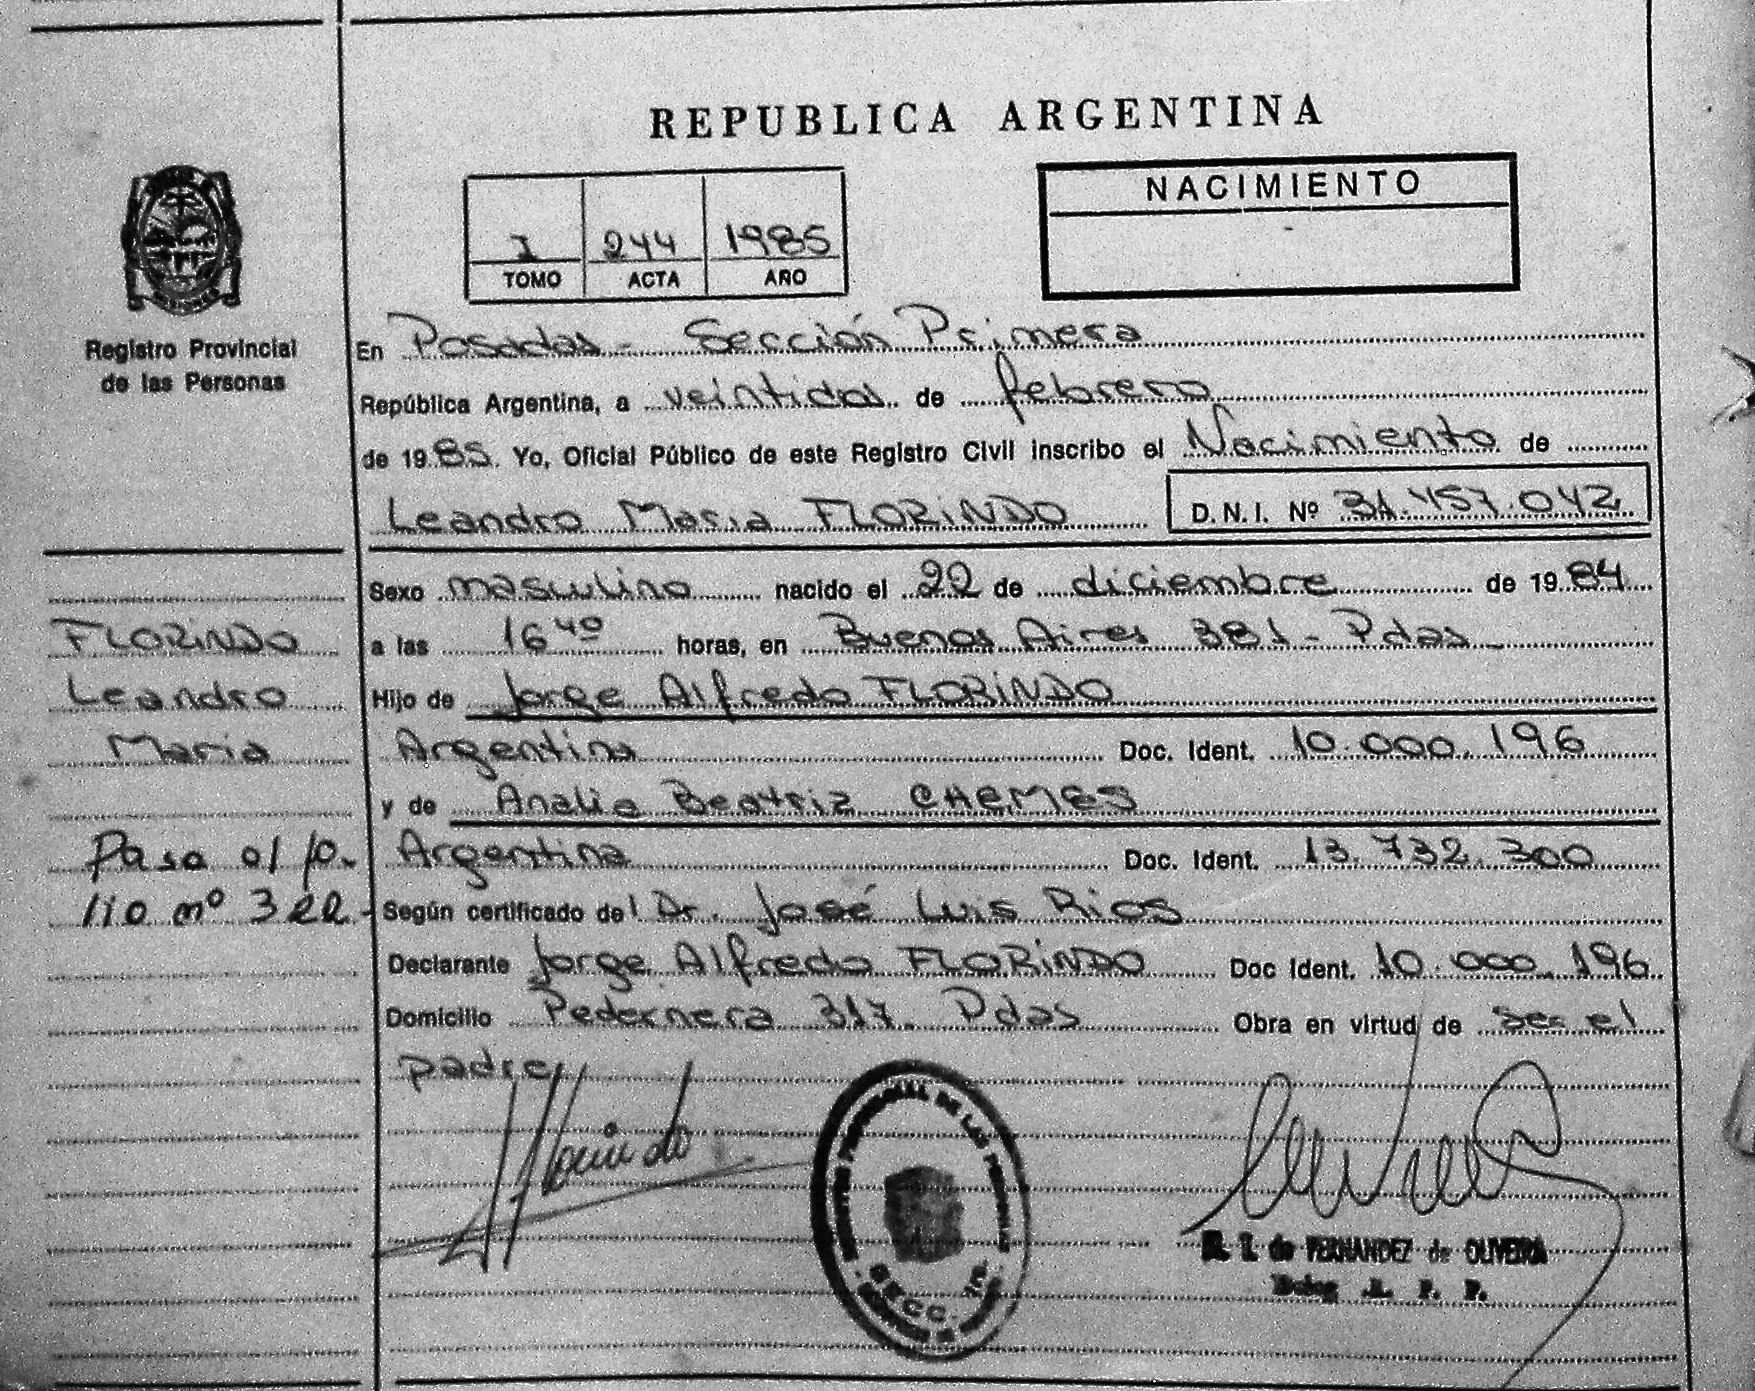 REPUBLICA ARGENTINA
NACIMIENTO
I 244 1985
TOMO ACTA AÑO
Registro Provincial
de las Personas
En Posadas - Sección Primera
República Argentina, a veintidos de febrero
de 1985. Yo, Oficial Público de este Registro Civil inscribo el Nacimiento de
Leandro Maria FLORINDO D.N.I. Nº 31.457.042
Sexo masculino nacido el 22 de diciembre de 1984
a las 16 40 horas, en Buenos Aires 381 - Pdas
Hijo de Jorge Alfredo FLORINDO
Argentina Doc. Ident. 10.000.196
y de Analia Beatriz CHEMES
Argentina Doc. Ident. 13.732.300
Según certificado del Dr. José Luis Rios
Declarante Jorge Alfredo FLORINDO Doc Ident. 10.000.196
Domicilio Pedernera 317. Pdas Obra en virtud de ser el
padre
FLORINDO
Leandro
Maria
Pasa al fo-
lio nº 322-
PROVINCIAL DE LAS PERSONAS
SECC. 1ra.
FERNANDEZ de OLIVEIRA